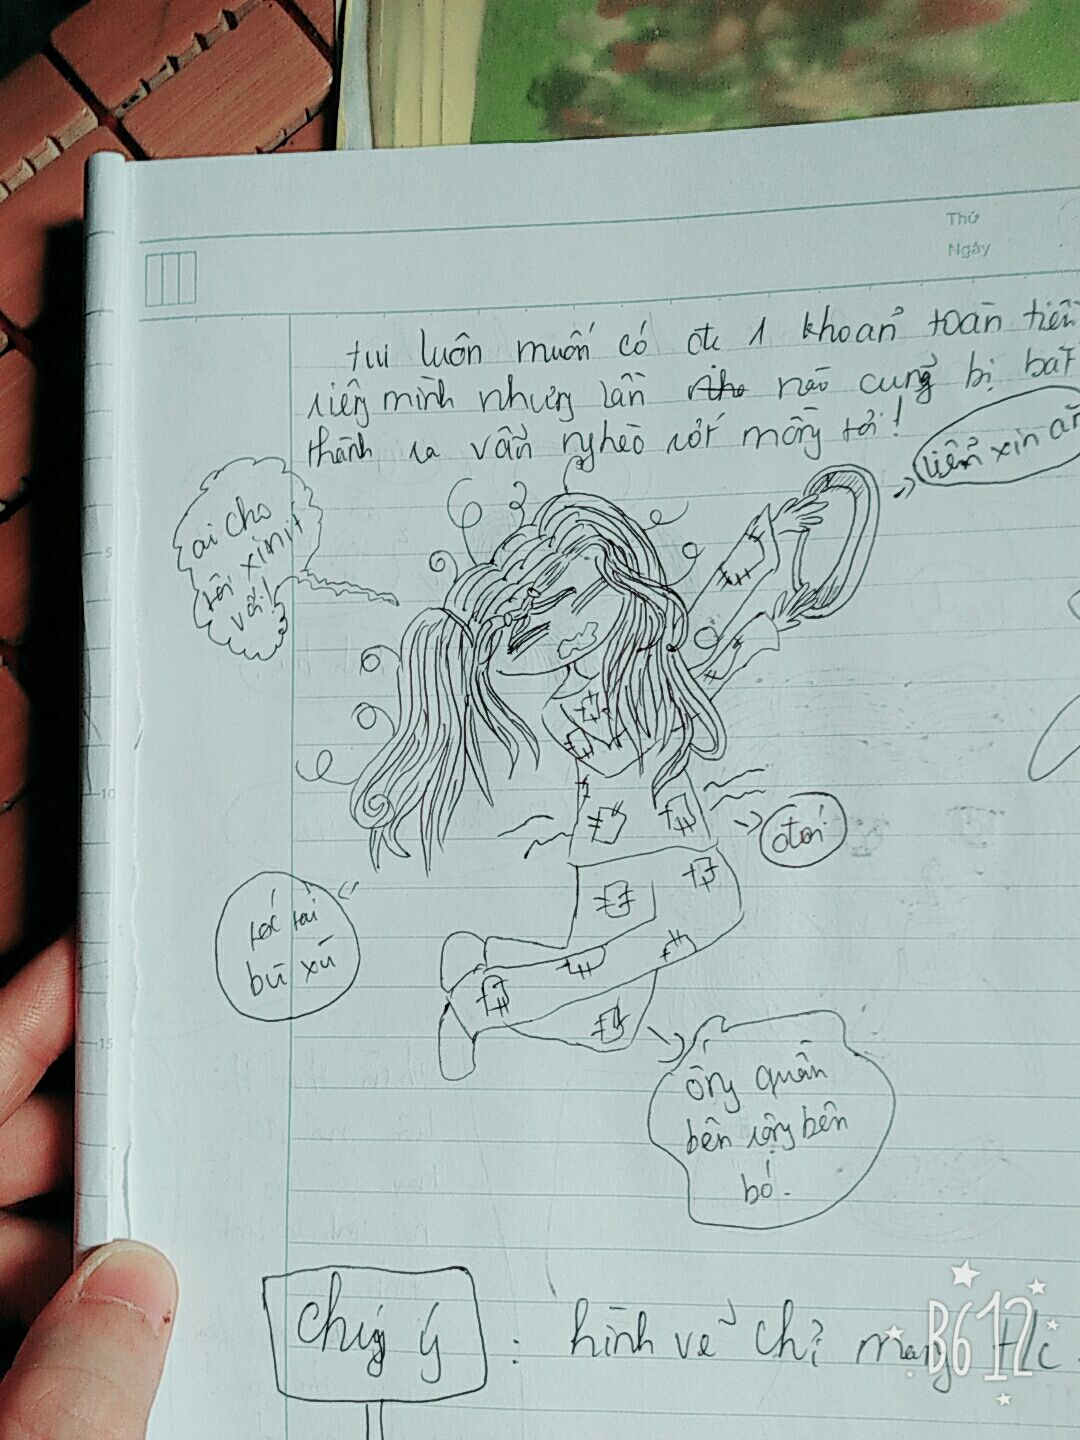 Thứ
Ngày
tui luôn muốn có đc 1 khoản toàn tiền
riêng mình nhưng lần nào cũng bị bắt
thành ra vẫn nghèo rớt mồng tơi!
liểng xin ăn
ai cho
tôi xin ít
với!
5
ơtơi!
10
tóc tai
bù xù
15
ống quần
bên rộng bên
bó.
Chúý ý : hình vẽ chỉ mang t/c
B612